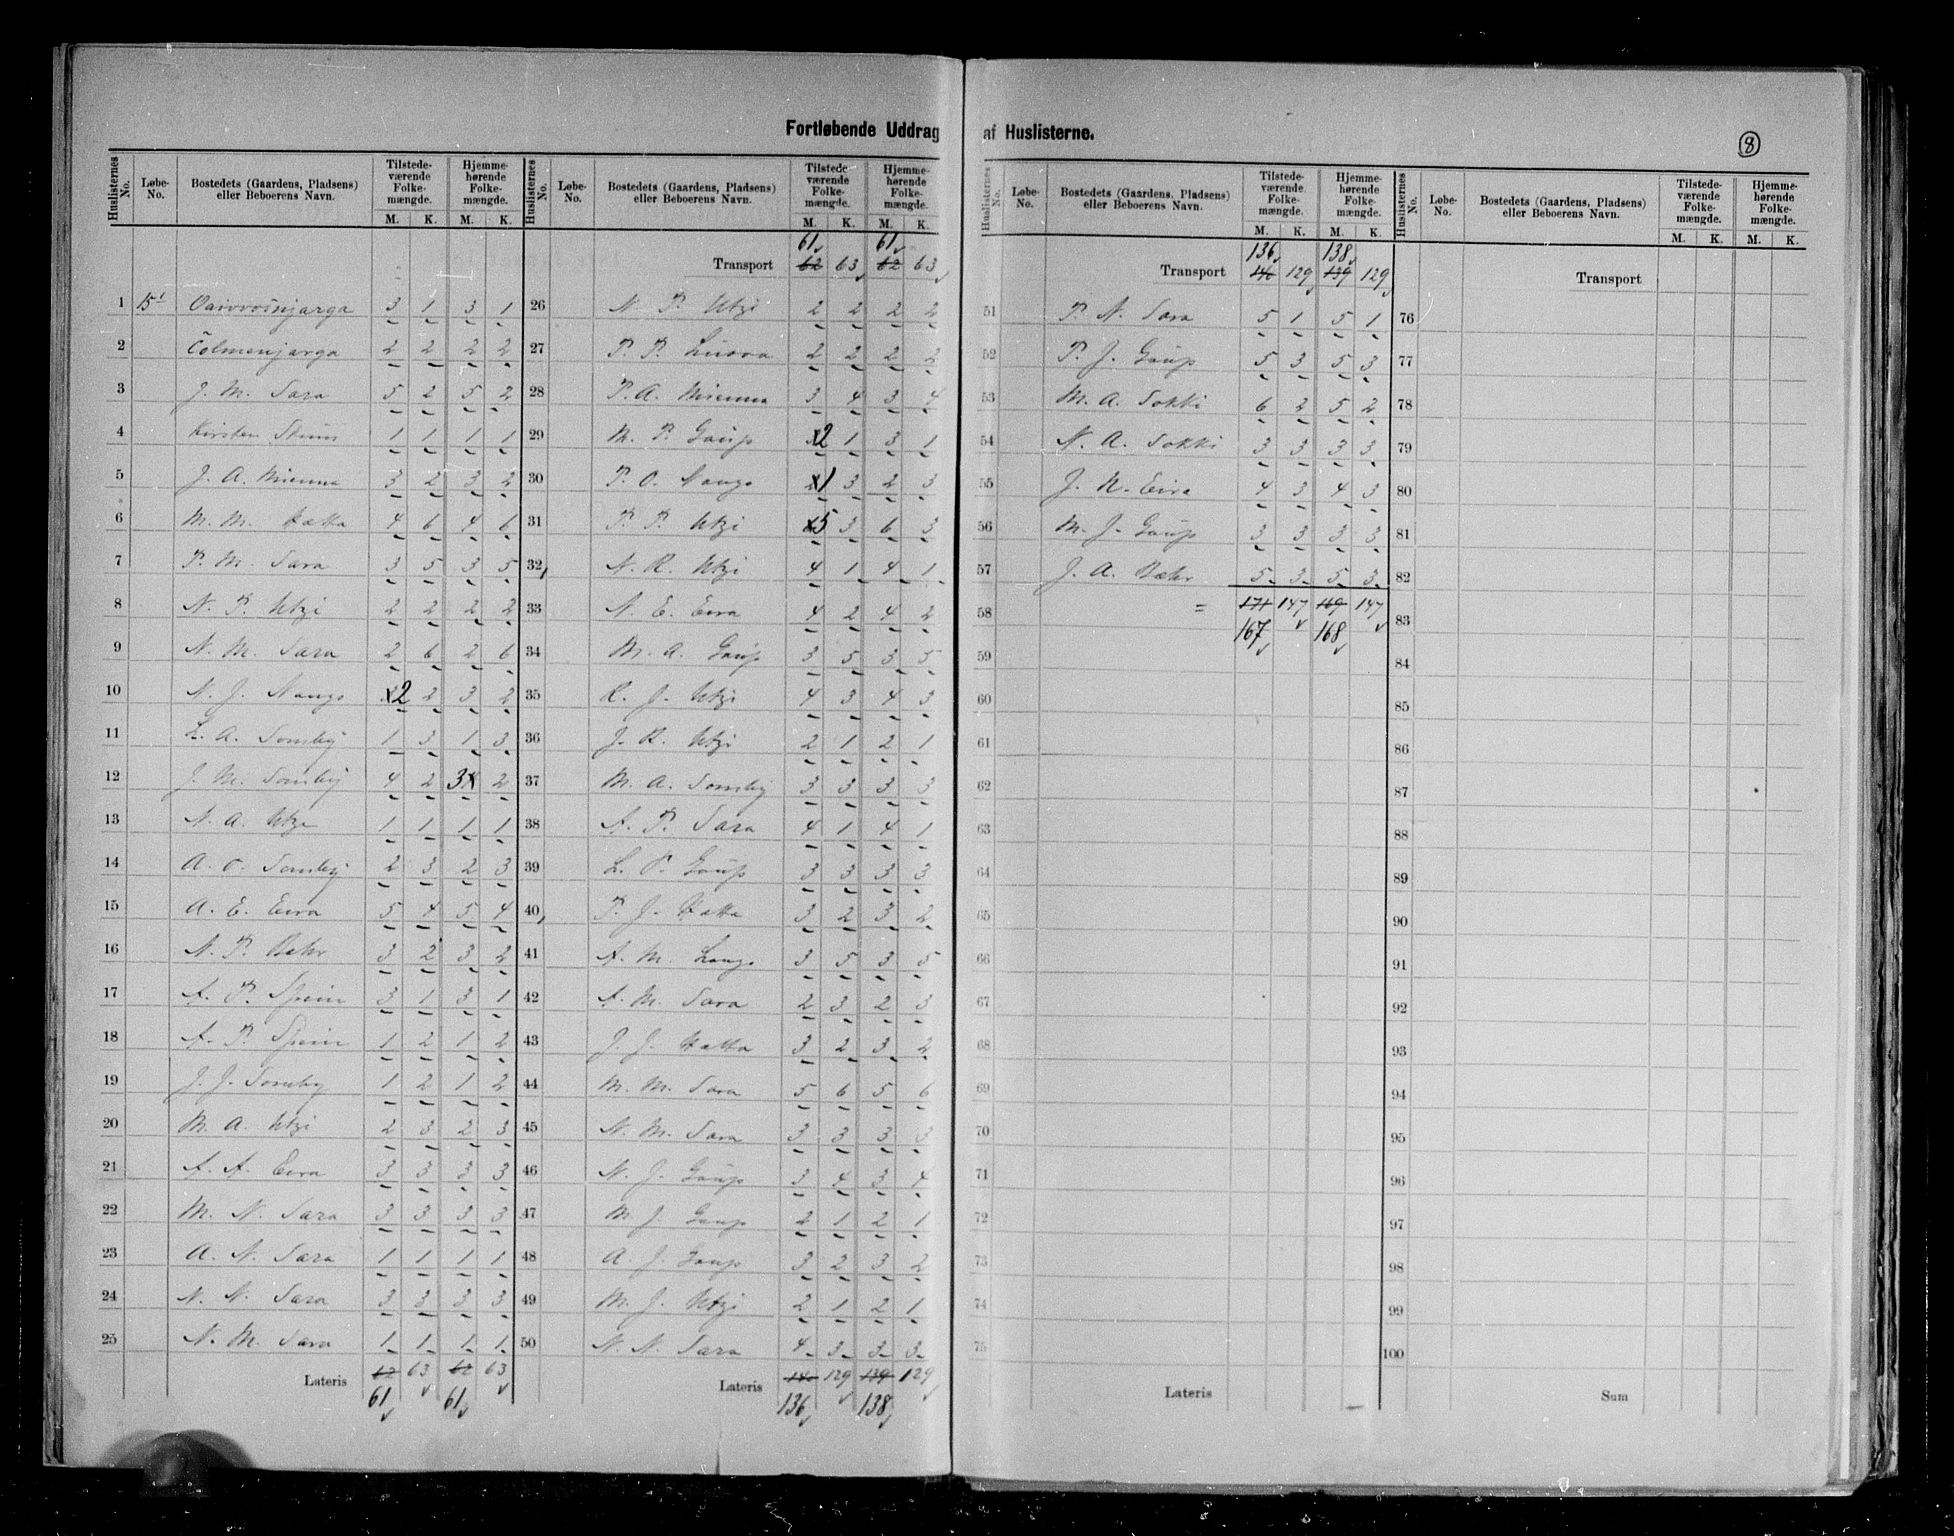 Fortløbende Uddrag af Huslisterne.
8
Huslisternes No. Løbe-No. Bostedets (Gaardens, Pladsens) eller Beboerens Navn. Tilstedeværende Folkemængde. M. K. Hjemmehørende Folkemængde. M. K.
1 15 1 3 1 3 1
2 Čolmenjarga 2 2 2 2
3 J. M. Sara 5 2 5 2
4 Kirsten 1 1 1 1
5 J. A. Mienna 3 2 3 2
6 M. M. Hætta 4 6 4 6
7 P. M. Sara 3 5 3 5
8 N. P. Utzi 2 2 2 2
9 N. M. Sara 2 6 2 6
10 N. J. Nango 2 2 3 2
11 L. A. Somby 1 3 1 3
12 J. M. Somby 4 2 3 4 2
13 N. A. Utze 1 1 1 1
14 A. O. Somby 2 3 2 3
15 A. E. Eira 5 4 5 4
16 N. P. Bæhr 3 2 3 2
17 A. P. Spein 3 1 3 1
18 A. P. Spein 1 2 1 2
19 J. J. Somby 1 2 1 2
20 M. A. Utzi 2 3 2 3
21 A. A. Eira 3 3 3 3
22 M. N. Sara 3 3 3 3
23 A. N. Sara 1 1 1 1
24 N. N. Sara 3 3 3 3
25 N. M. Sara 1 1 1 1
Lateris 62 63 62 63
61 61
Huslisternes No. Løbe-No. Bostedets (Gaardens, Pladsens) eller Beboerens Navn. Tilstedeværende Folkemængde. M. K. Hjemmehørende Folkemængde. M. K.
61 61
Transport 62 63 62 63
26 N. P. Utzi 2 2 2 2
27 P. P. 2 2 2 2
28 P. A. Mienna 3 4 3 4
29 M. P. Gaup 2 1 3 1
30 P. O. Nango 1 3 2 3
31 P. P. Utzi 5 3 6 3
32 N. R. Utzi 4 1 4 1
33 N. E. Eira 4 2 4 2
34 M. A. Gaup 3 5 3 5
35 R. J. Utzi 4 3 4 3
36 J. R. Utzi 2 1 2 1
37 M. A. Somby 3 3 3 3
38 A. P. Sara 4 1 4 1
39 L. P. Gaup 3 3 3 3
40 P. J. Hætta 3 2 3 2
41 A. M. 3 5 3 5
42 A. M. Sara 2 3 2 3
43 J. J. Hætta 3 2 3 2
44 M. M. Sara 5 6 5 6
45 N. M. Sara 3 3 3 3
46 N. J. Gaup 3 4 3 4
47 M. J. Gaup 2 1 2 1
48 A. J. Gaup 3 2 3 2
49 M. J. Utzi 2 1 2 1
50 N. N. Sara 4 3 3 3
Lateris 140 129 139 129
136 138
Huslisternes No. Løbe-No. Bostedets (Gaardens, Pladsens) eller Beboerens Navn. Tilstedeværende Folkemængde. M. K. Hjemmehørende Folkemængde. M. K.
136 138
Transport 140 129 139 129
51 P. N. Sara 5 1 5 1
52 P. J. Gaup 5 3 5 3
53 M. A. Sokki 6 2 5 2
54 N. A. Sokki 3 3 3 3
55 J. N. Eira 4 3 4 3
56 M. J. Gaup 3 3 3 3
57 J. A. Bæhr 5 3 5 3
58 = 171 147 169 147
167 168
59
60
61
62
63
64
65
66
67
68
69
70
71
72
73
74
75
Lateris
Huslisternes No. Løbe-No. Bostedets (Gaardens, Pladsens) eller Beboerens Navn. Tilstedeværende Folkemængde. M. K. Hjemmehørende Folkemængde. M. K.
Transport
76
77
78
79
80
81
82
83
84
85
86
87
88
89
90
91
92
93
94
95
96
97
98
99
100
Sum